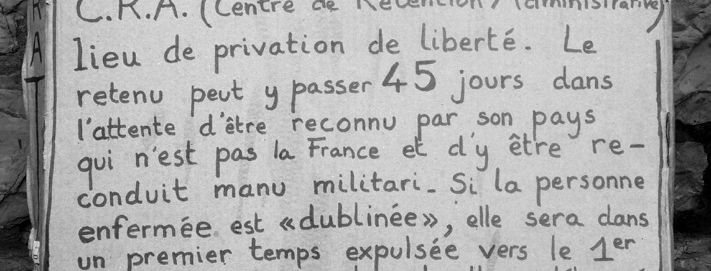 C.R.A. (Centre de Rétention Administrative)
lieu de privation de liberté. Le
retenu peut y passer 45 jours dans
l'attente d'être reconnu par son pays
qui n'est pas la France et d'y être re-
conduit manu militari. Si la personne
enfermée est «dublinée», elle sera dans
un premier temps expulsée vers le 1er